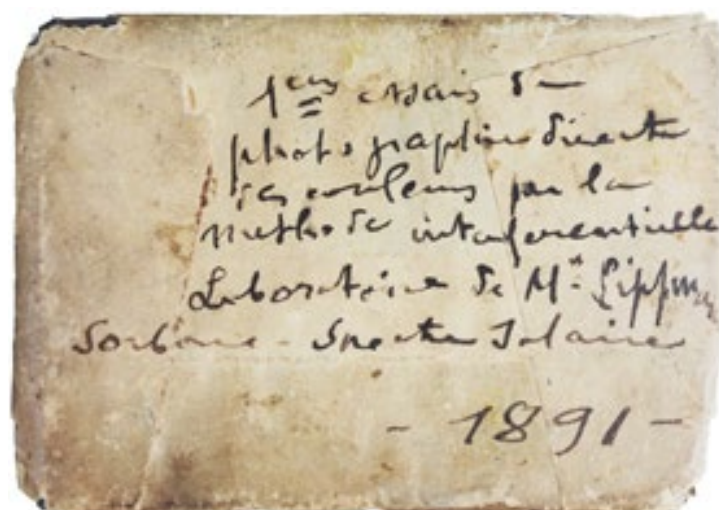 1ers essais de
photographie directe
des couleurs par la
méthode interférentielle
Laboratoire de Mr Lippmann
Sorbonne - Spectre Solaire
- 1891 -